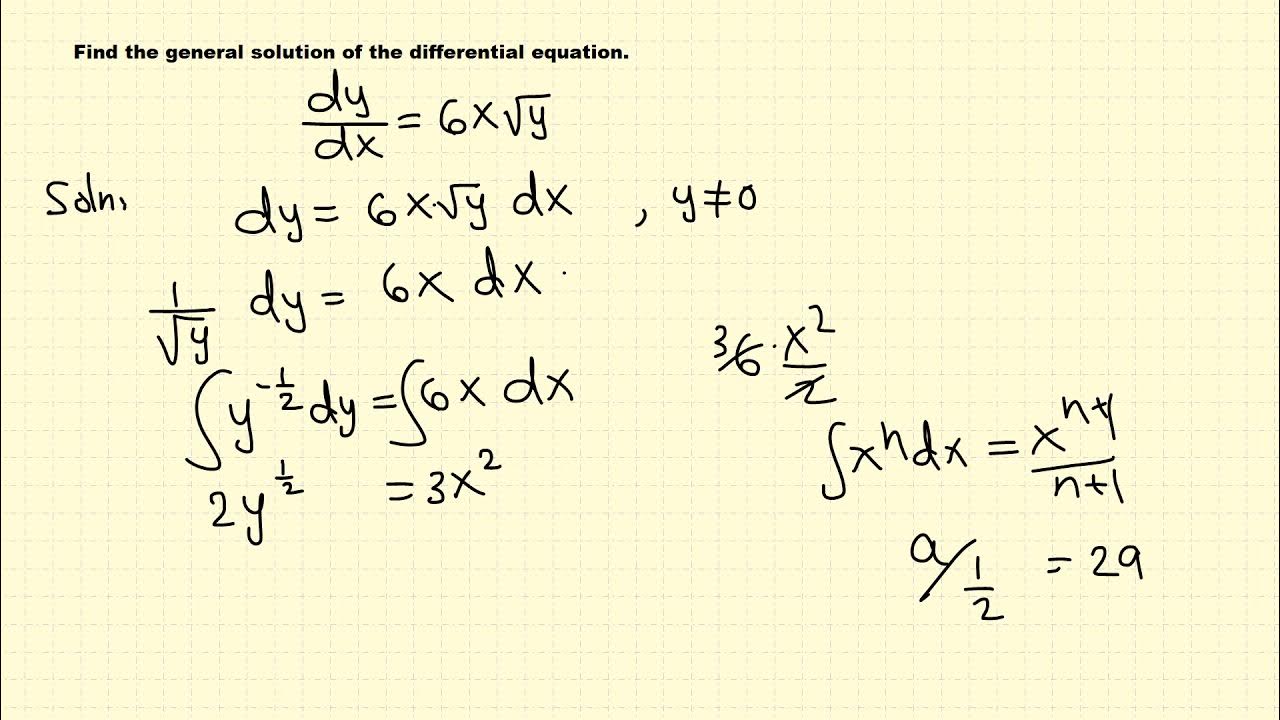 Find the general solution of the differential equation.
dy/dx = 6x√y
Soln, dy = 6x·√y dx , y≠0
1/√y dy = 6x dx .
3 6 · x²/2
∫y^(-1/2) dy = ∫6x dx
∫xⁿdx = x^(n+1)/(n+1)
2y^(1/2) = 3x²
a/(1/2) = 2a